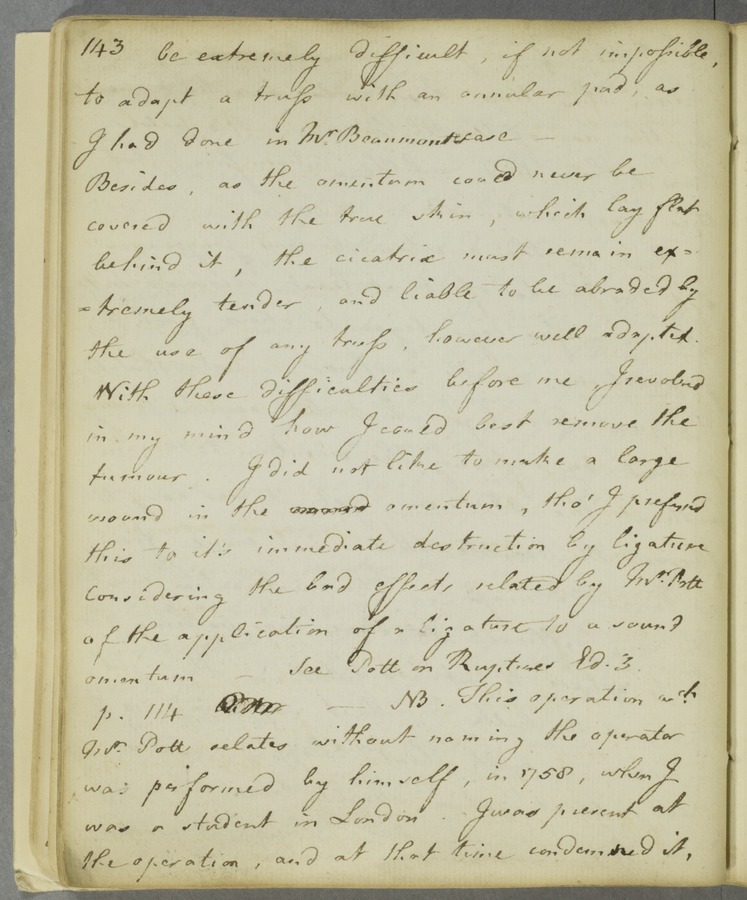 143 be extremely difficult, if not impossible,
to adapt a truss with an annular pad, as
I had done in Mr. Beaumont's case —
Besides, as the omentum could never be
covered with the true skin, which lay flat
behind it, the cicatrix must remain ex=
=tremely tender, and liable to be abraded by
the use of any truss, however well adapted.
With these difficulties before me, I revolved
in my mind how I could best remove the
tumour. I did not like to make a large
wound in the omentum, tho' I prefered
this to it's immediate destruction by ligature
considering the bad effects related by Mr. Pott
of the application of a ligature to a sound
omentum — See Pott on Ruptures Ed. 3.
p. 114 — NB. This operation wch
Mr. Pott relates without naming the operator
was performed by himself, in 1758, when I
was a student in London. I was present at
the operation, and at that time condemned it,